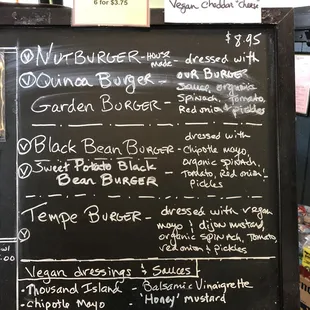 6 for $3.75
Vegan Cheddar "Cheese"
$8.95
Ⓥ NUTBURGER - HOUSE MADE - dressed with
Ⓥ Quinoa Burger - OUR BURGER
Sauce, organic
Garden BURGER - Spinach, tomato,
Red onion & pickles
Ⓥ Black Bean BURGER - dressed with
chipotle mayo,
organic spinach,
Ⓥ Sweet Potato Black
Bean BURGER - Tomato, Red onion &
Pickles
Tempe BURGER - dressed with vegan
Ⓥ mayo & dijon mustard,
organic spinach, Tomato,
red onion & pickles
Vegan dressings & Sauces
• Thousand Island - Balsamic Vinaigrette
• chipotle Mayo - 'Honey' mustard